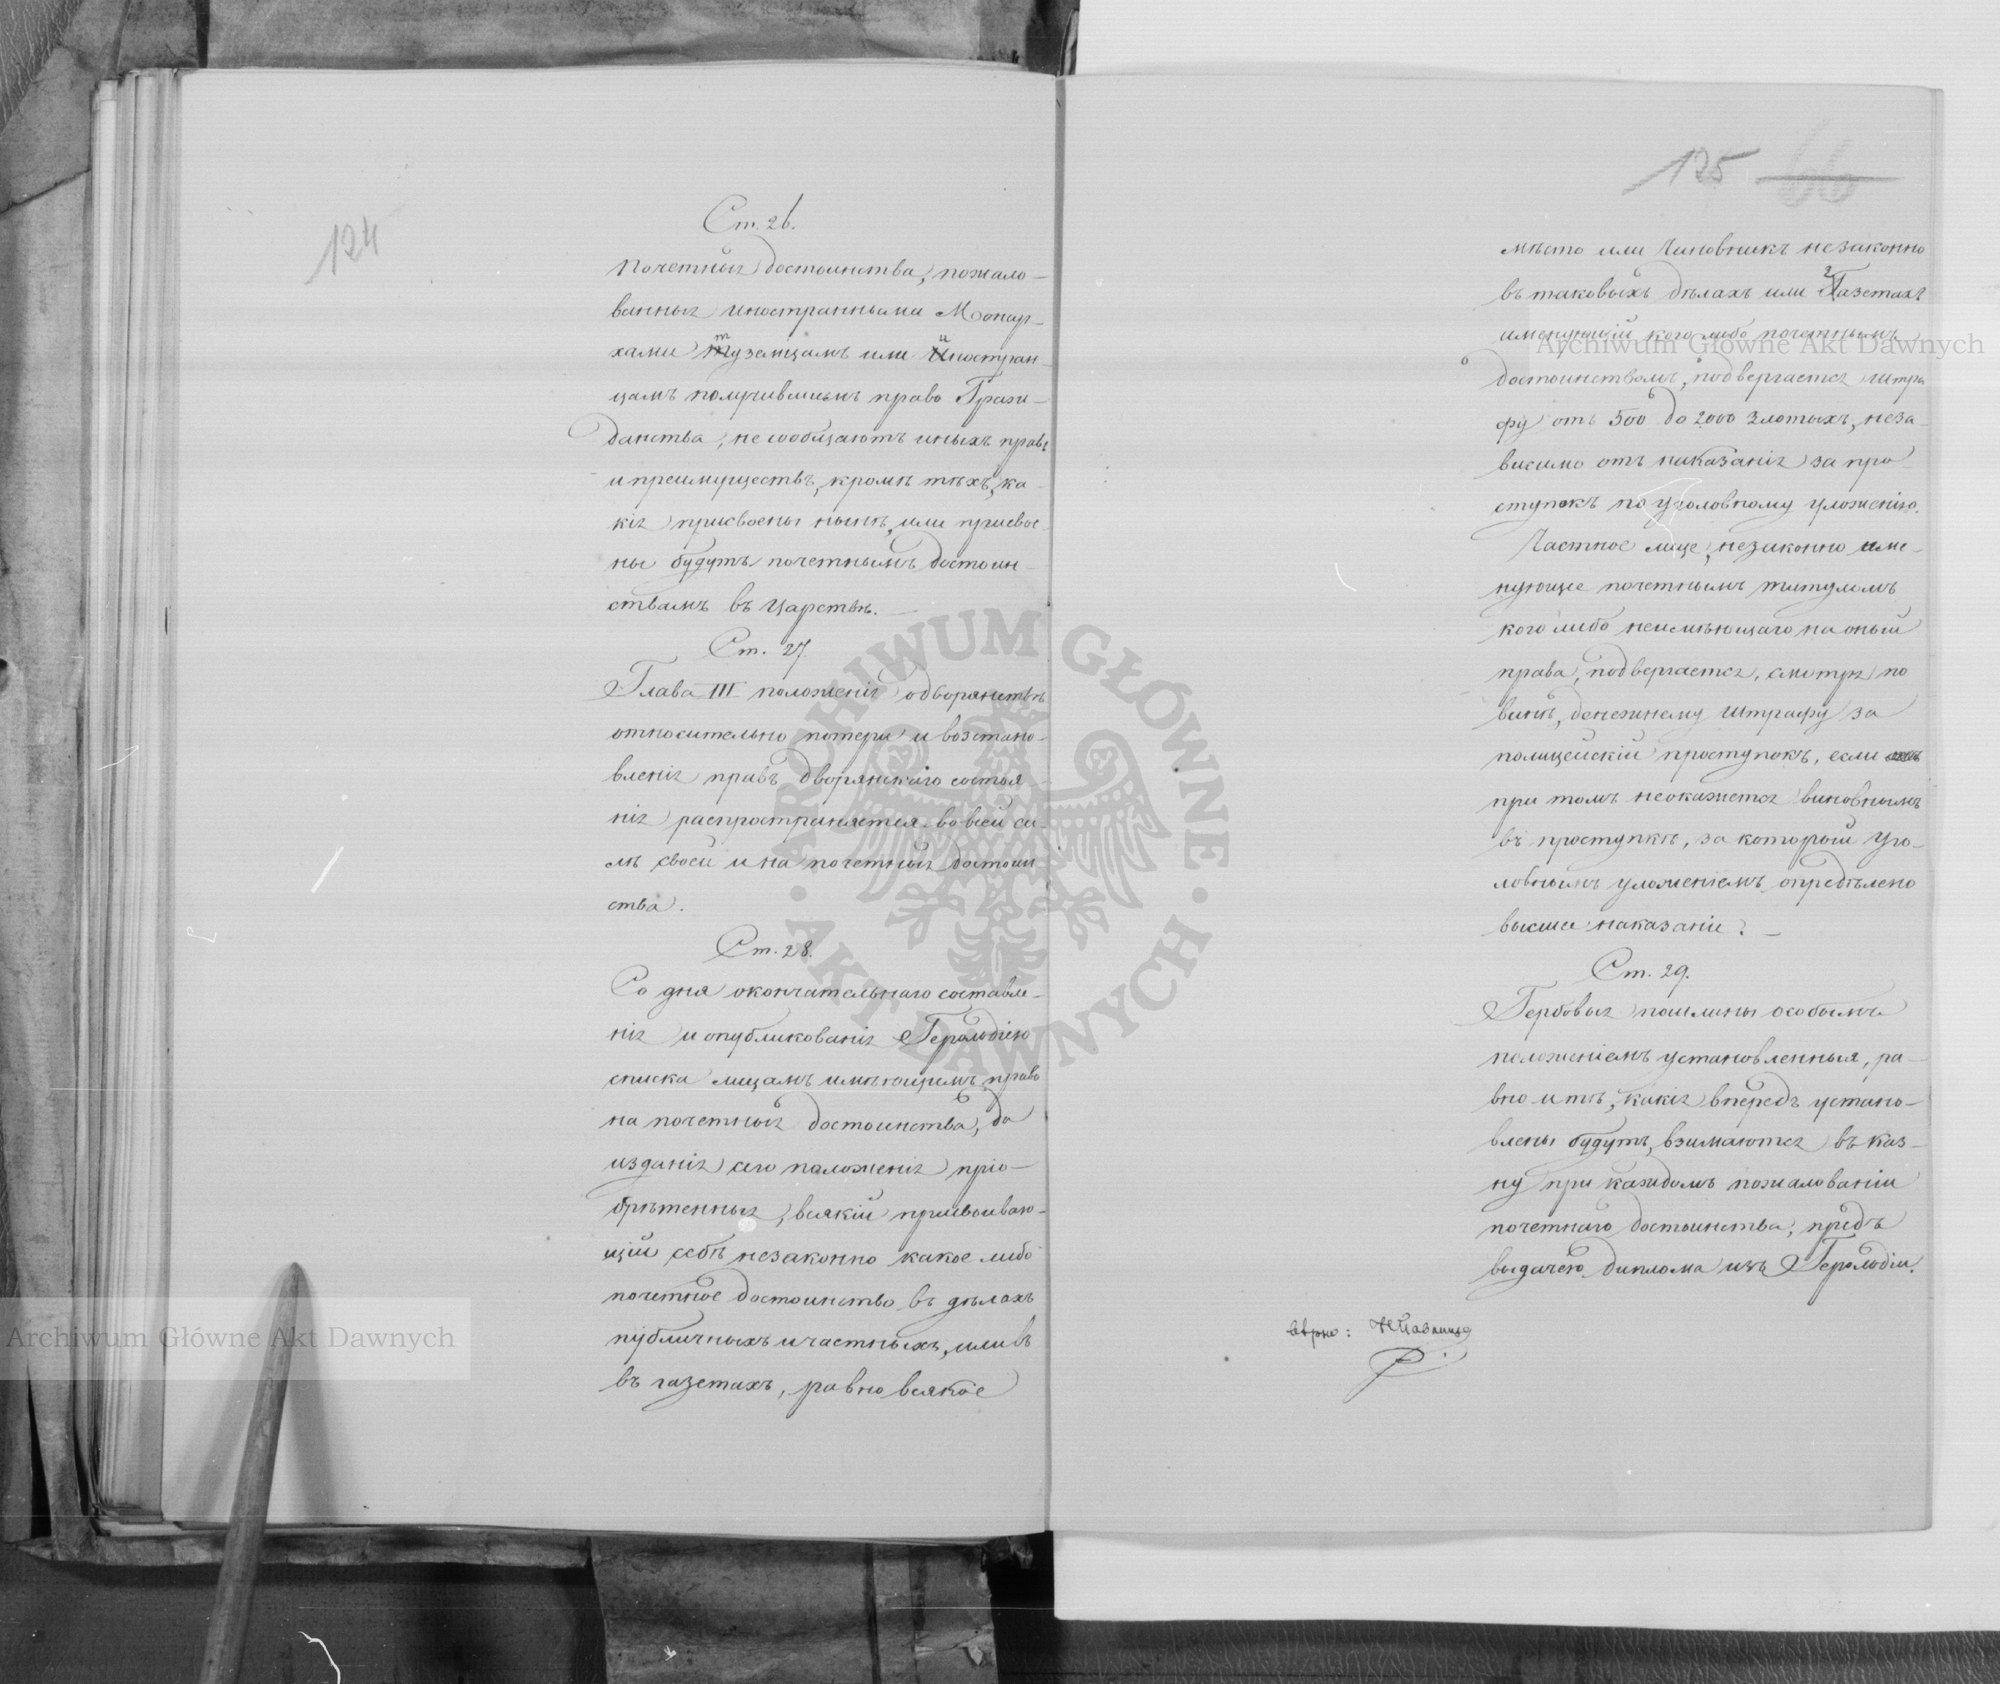 124
Ст. 26.
Почетныя достоинства, пожало-
ванныя иностранными Монар-
хами туземцамъ или иностран-
цамъ получившимъ право Граж-
данства, не сообщаютъ иныхъ правъ
и преимуществъ, кромѣ тѣхъ, ка-
кія присвоены нынѣ, или присвое-
ны будутъ почетнымъ достоин-
ствамъ въ Царствѣ.
Ст. 27.
Глава III положенія о дворянствѣ
относительно потери и возстано-
вленія правъ дворянскаго состоя-
нія распространяется во всей си-
лѣ своей и на почетныя достоин-
ства.
Ст. 28.
Со дня окончательнаго составле-
нія и опубликованія Герольдіею
списка лицамъ имѣющимъ право
на почетныя достоинства, до
изданія сего положенія прiо-
брѣтенныя, всякій присвоиваю-
щій себѣ незаконно какое либо
почетное достоинство въ дѣлахъ
публичныхъ и частныхъ, или въ
въ газетахъ, равно всякое
125 66
мѣсто или Чиновникъ незаконно
въ таковыхъ дѣлахъ или газетахъ
именующій кого либо почетнымъ
достоинствомъ, подвергается штра-
фу отъ 500 до 2000 злотыхъ, неза-
висимо отъ наказанія за про-
ступокъ по уголовному уложенію.
Частное лице, незаконно име-
нующее почетнымъ титуломъ
кого либо неимѣющаго на оный
права, подвергается, смотря по
винѣ, денежному штрафу за
полицейскій проступокъ, если
при томъ неокажется виновнымъ
въ проступкѣ, за который Уго-
ловнымъ уложеніемъ опредѣлено
высшее наказаніе.
Ст. 29.
Гербовыя пошлины особымъ
положеніемъ установленныя, ра-
вно и тѣ, какія впредь устано-
влены будутъ, взимаются въ каз-
ну при каждомъ пожалованіи
почетнаго достоинства, предъ
выдачею диплома изъ Герольдіи.
вѣрно:
Archiwum Główne Akt Dawnych
Archiwum Główne Akt Dawnych
ARCHIWUM GŁÓWNE · AKT DAWNYCH ·